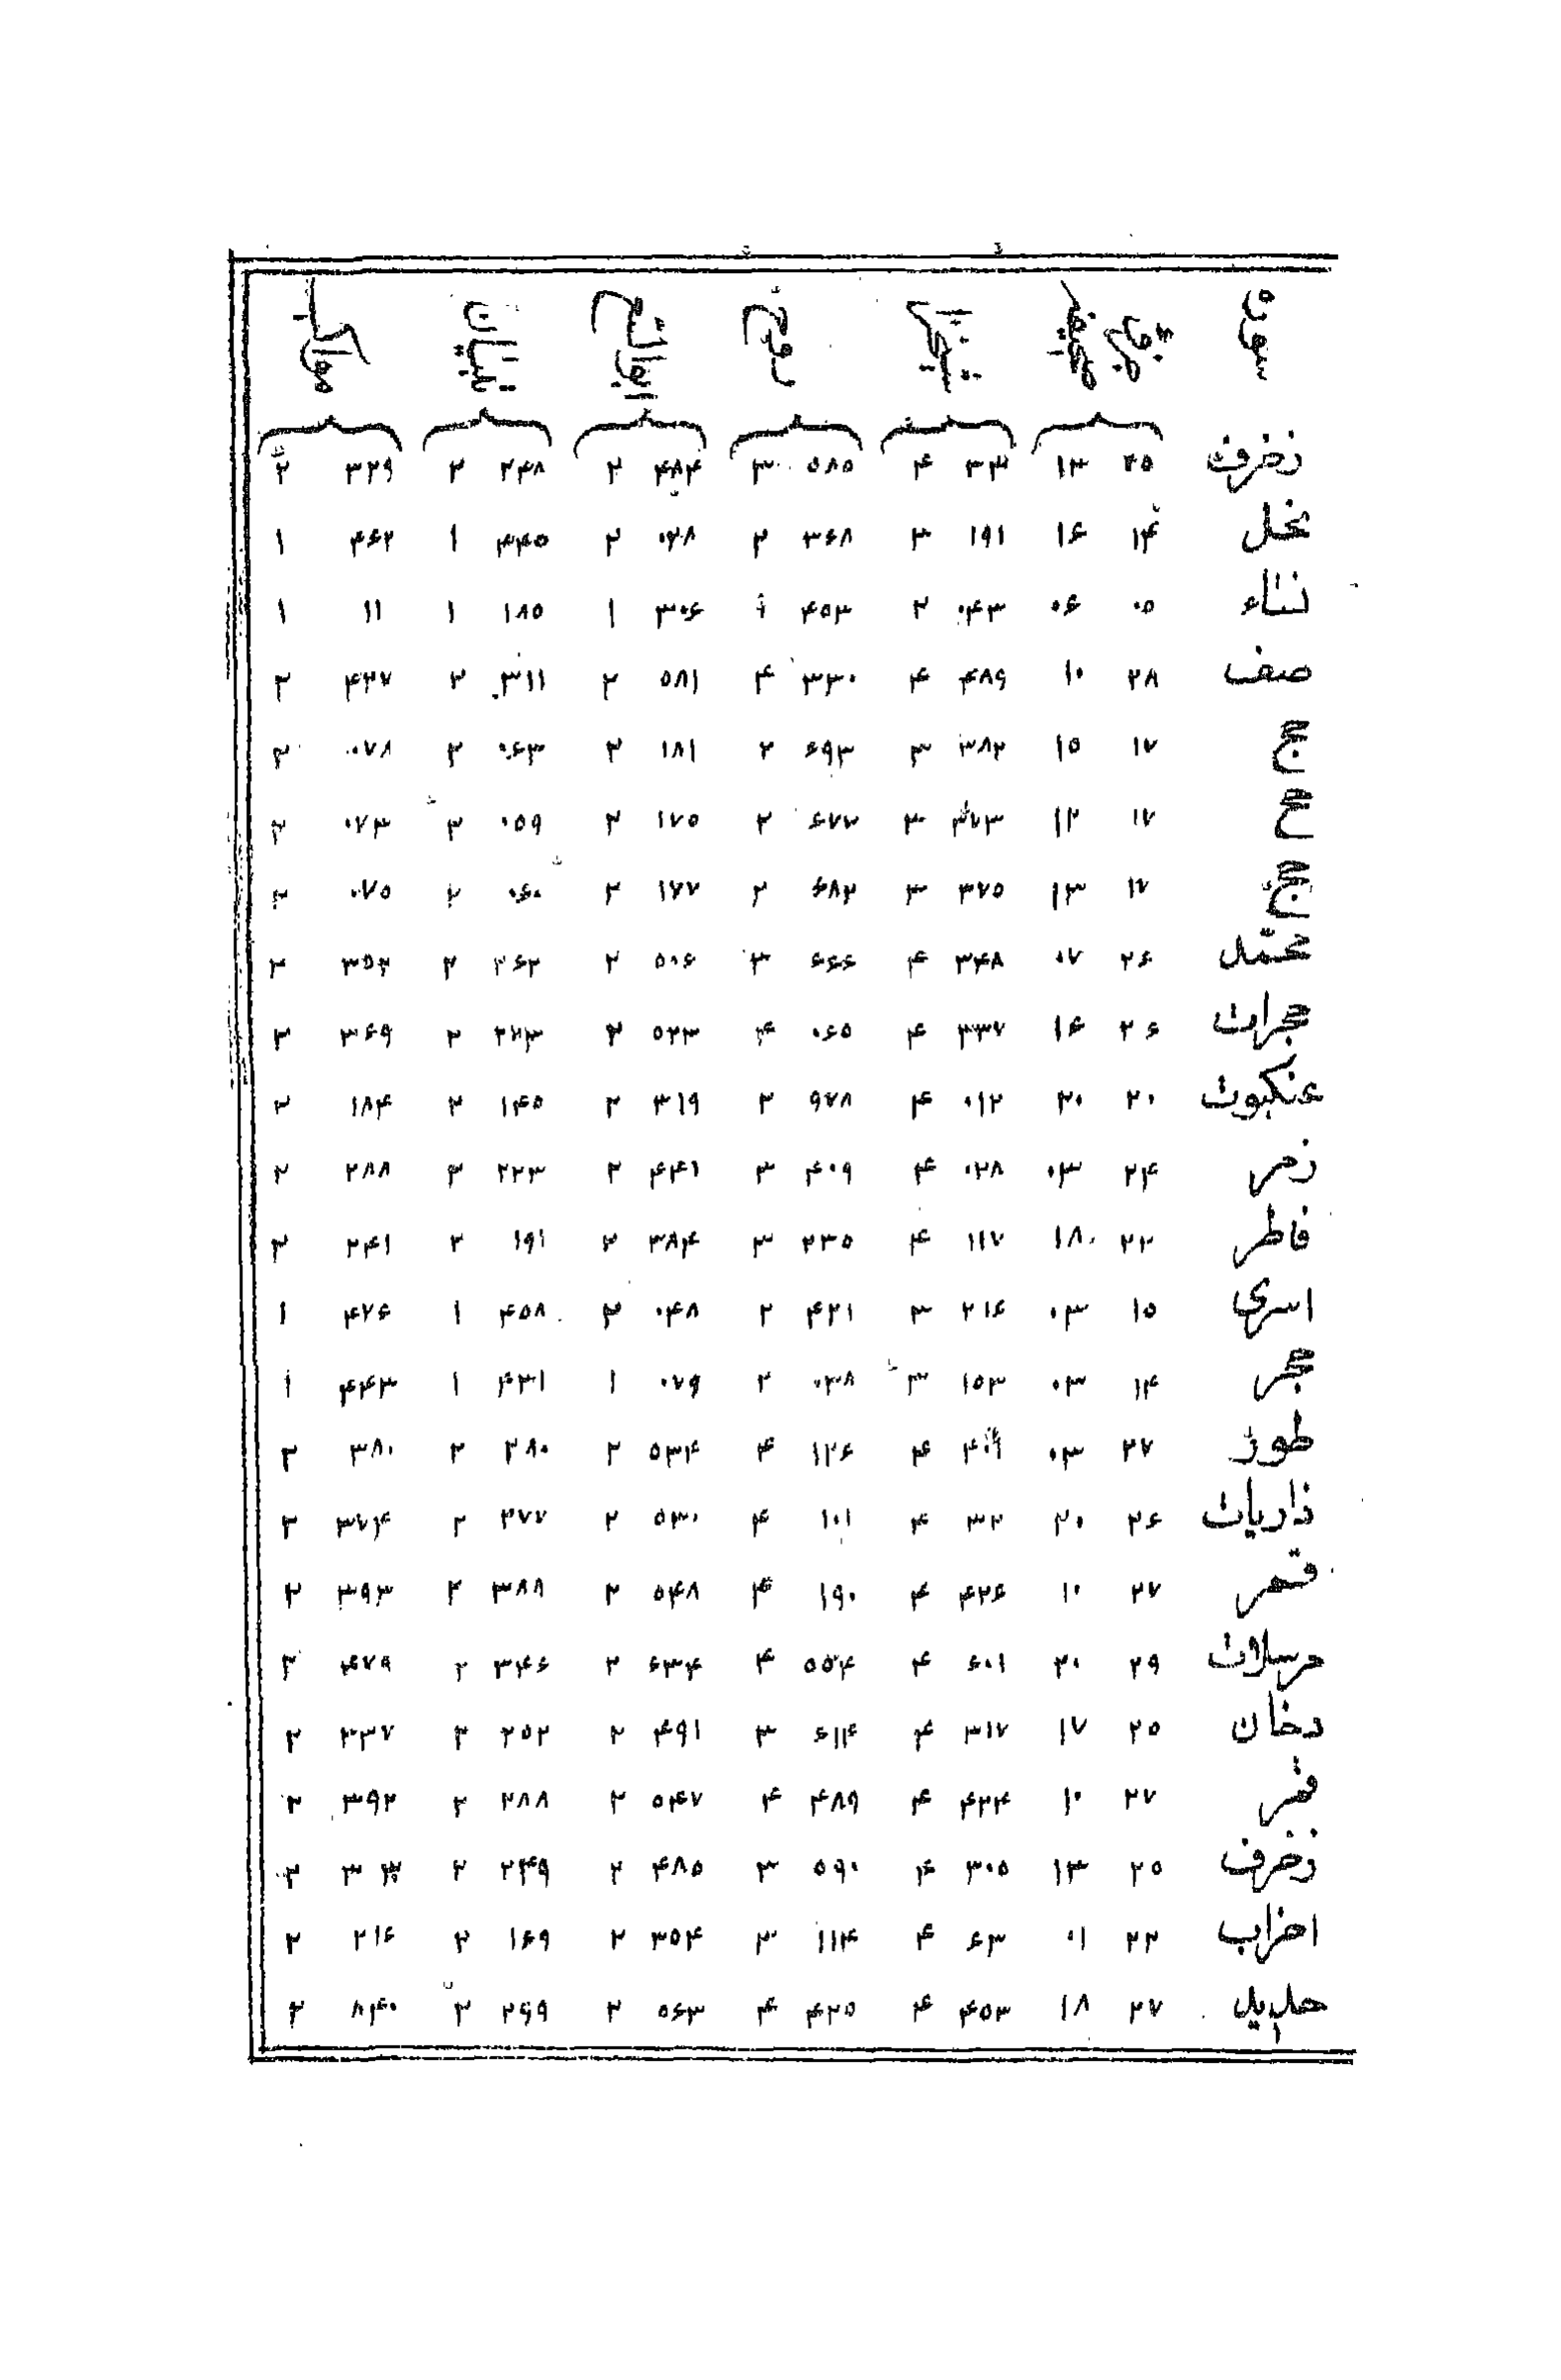 سوره جزء صفحه تبیان
زخرف ۲۵ ۱۳ ۳۳ ۴ ۵۸۵ ۳ ۴۸۴ ۲ ۲۴۸ ۲ ۳۲۹ ۲
نحل ۱۴ ۱۶ ۱۹۱ ۳ ۳۶۸ ۲ ۰۲۸ ۲ ۴۴۵ ۱ ۴۶۲ ۱
نساء ۰۵ ۰۶ ۰۴۳ ۲ ۴۵۳ ۳۰۶ ۱ ۱۸۵ ۱ ۱۱ ۱
صف ۲۸ ۱۰ ۴۸۹ ۴ ۳۳۰ ۴ ۵۸۱ ۲ ۳۱۱ ۲ ۴۲۷ ۲
حج ۱۷ ۱۵ ۳۸۲ ۳ ۶۹۳ ۲ ۱۸۱ ۲ ۰۶۳ ۲ ۰۷۸ ۲
حج ۱۷ ۱۲ ۳۷۳ ۳ ۶۷۷ ۲ ۱۷۵ ۲ ۰۵۹ ۲ ۰۷۳ ۲
حج ۱۷ ۱۳ ۳۷۵ ۳ ۶۸۲ ۲ ۱۷۷ ۲ ۰۶۰ ۲ ۰۷۵ ۲
محمّد ۲۶ ۰۷ ۳۴۸ ۴ ۶۶۶ ۳ ۵۰۶ ۲ ۲۶۲ ۲ ۳۵۲ ۲
حجرات ۲۶ ۱۶ ۳۳۷ ۴ ۰۶۵ ۴ ۵۲۳ ۲ ۲۷۳ ۲ ۳۶۹ ۲
عنکبوت ۲۰ ۲۰ ۰۱۲ ۴ ۹۷۸ ۲ ۳۱۹ ۲ ۱۴۵ ۲ ۱۸۴ ۲
زمر ۲۴ ۰۳ ۰۲۸ ۴ ۴۰۹ ۳ ۴۴۱ ۲ ۲۲۳ ۲ ۲۸۸ ۲
فاطر ۲۲ ۱۸ ۱۱۷ ۴ ۲۳۵ ۳ ۳۸۴ ۲ ۱۹۱ ۲ ۲۴۱ ۲
اسری ۱۵ ۰۳ ۲۱۶ ۳ ۴۲۱ ۲ ۰۴۸ ۲ ۴۵۸ ۱ ۴۷۶ ۱
حجر ۱۴ ۰۳ ۱۵۳ ۳ ۰۳۸ ۲ ۰۷۹ ۱ ۴۳۱ ۱ ۴۴۳ ۱
طور ۲۷ ۰۳ ۴ ۱۲۶ ۴ ۵۳۴ ۲ ۲۸۰ ۲ ۳۸۰ ۲
ذاریات ۲۶ ۲۰ ۳۲ ۴ ۱۰۱ ۴ ۵۳۰ ۲ ۲۷۷ ۲ ۳۷۴ ۲
قمر ۲۷ ۱۰ ۴۲۶ ۴ ۱۹۰ ۴ ۵۴۸ ۲ ۳۸۸ ۲ ۳۹۳ ۲
مرسلات ۲۹ ۲۰ ۶۰۱ ۴ ۵۵۴ ۴ ۶۳۴ ۲ ۳۴۶ ۲ ۴۷۹ ۲
دخان ۲۵ ۱۷ ۳۱۷ ۴ ۶۱۴ ۳ ۴۹۱ ۲ ۲۵۲ ۲ ۳۳۷ ۲
قمر ۲۷ ۱۰ ۴۲۴ ۴ ۴۸۹ ۴ ۵۴۷ ۲ ۲۸۸ ۲ ۳۹۲ ۲
زخرف ۲۵ ۱۳ ۳۰۵ ۴ ۵۹۰ ۳ ۴۸۵ ۲ ۲۴۹ ۲ ۲
احزاب ۲۲ ۰۱ ۶۳ ۴ ۱۱۴ ۳ ۳۵۴ ۲ ۱۶۹ ۲ ۲۱۶ ۲
حدید ۲۷ ۱۸ ۴۵۳ ۴ ۴۲۵ ۴ ۵۶۳ ۲ ۲۹۹ ۲ ۸۴۰ ۲